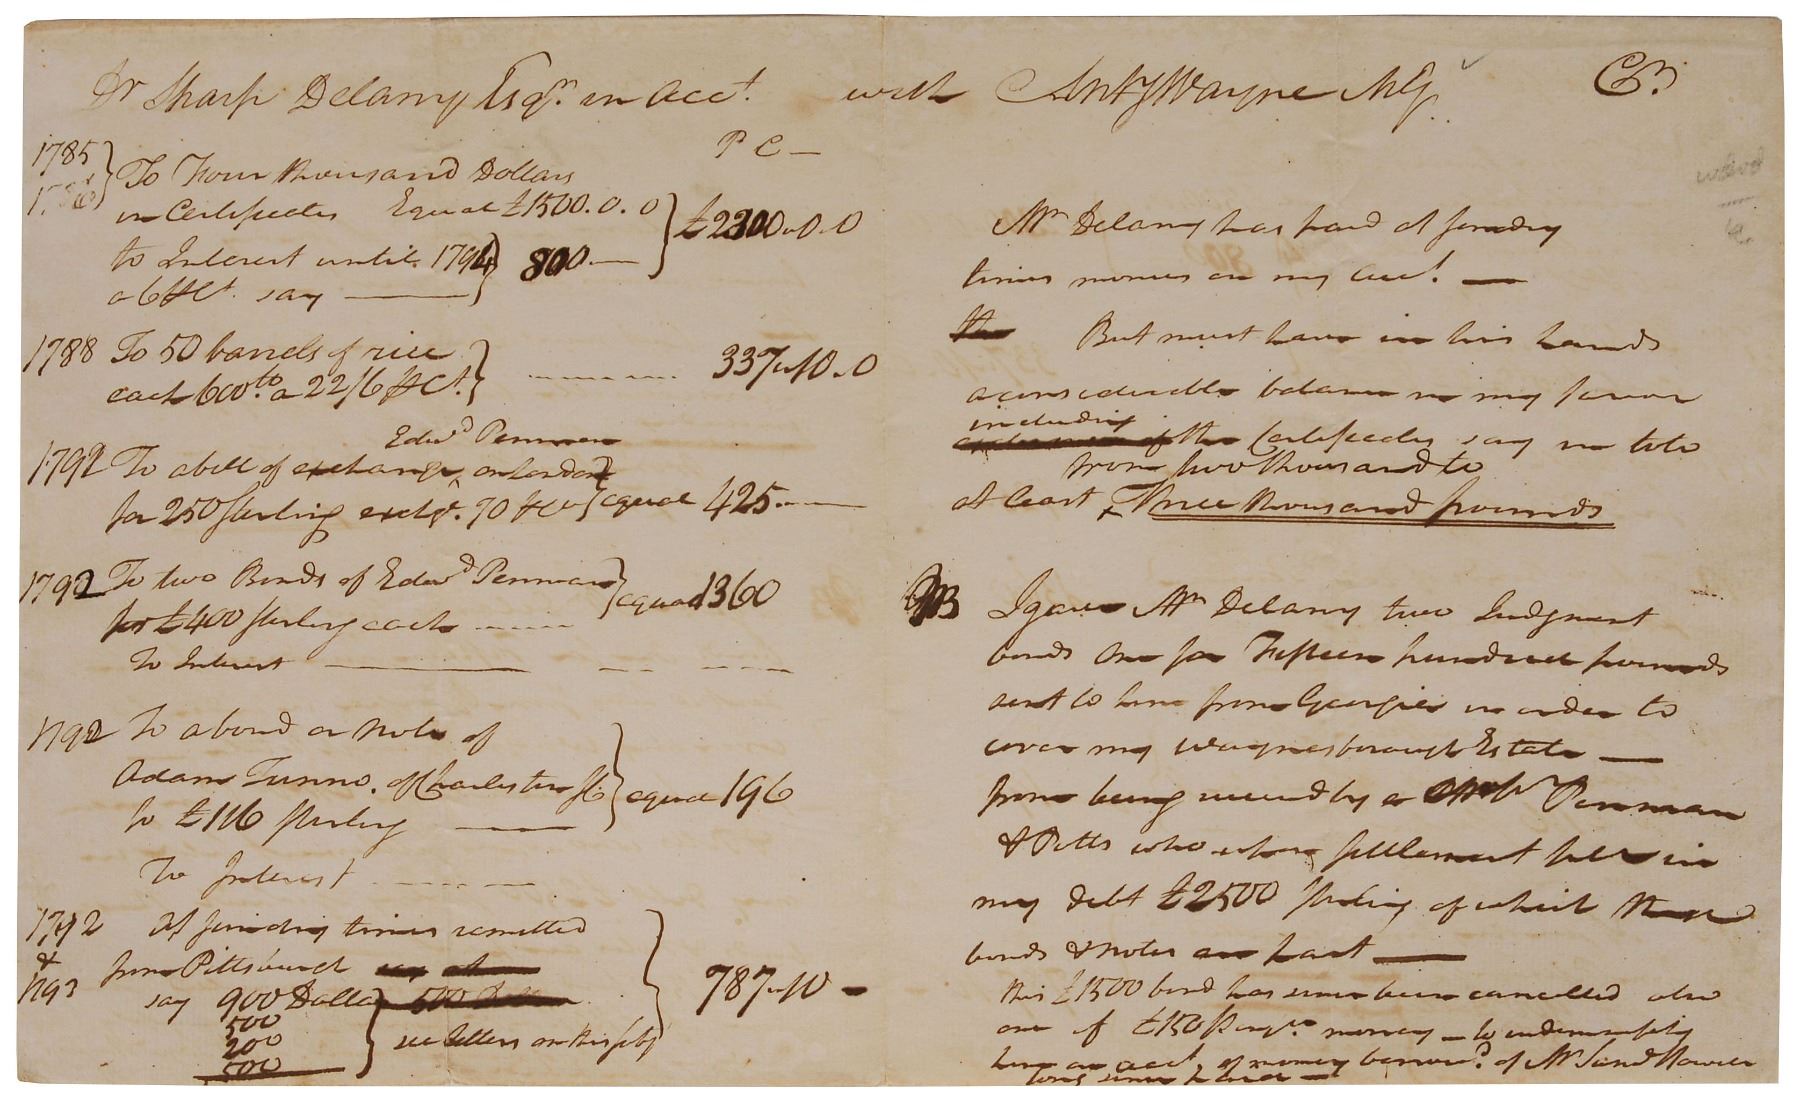 Dr Sharp Delany Esqr. in Acct. with Anty Wayne Cr.
P C —
1785
To Four thousand Dollars
in Certificates Equal £1500.0.0
£2300.0.0
to Interest until 1794 800.—
a 6 pCt. say —
1788 To 50 barrels of rice
each 600 lb. a 22/6 pCt. 337.10.0
Edwd Penman
1792 To a bill of exchange on London
for 250 sterling exchge. 70 pCt equal 425.—
1792 To two Bonds of Edwd Penman
for £400 sterling each equal 1360
To Interest —
1792 To a bond or note of
Adam Tunno, of Charleston
for £116 sterling — equal 196
To Interest
1792 At sundry times remitted
&
1793 from Pittsburgh
say 900 Dollars 500
500
200 see letters on this subj
500
787.10 —
Mr Delany has paid at sundry
times monies on my acct. —
the But must have in his hands
a considerable balance in my favor
including
the Certificates say in toto
from two thousand to
at least Three thousand pounds
NB I gave Mr Delany two Judgment
bonds One for Fifteen hundred pounds
sent to him from Georgia in order to
cover my Waynesborough Estate —
from being by a Penman
& Potts who upon settlement fell in
my debt £2500 sterling of which these
bonds & notes are part —
this £1500 bond has since been cancelled also
one of £150 money — to indemnify
him on acct. of money borrowd. of Mr
long since